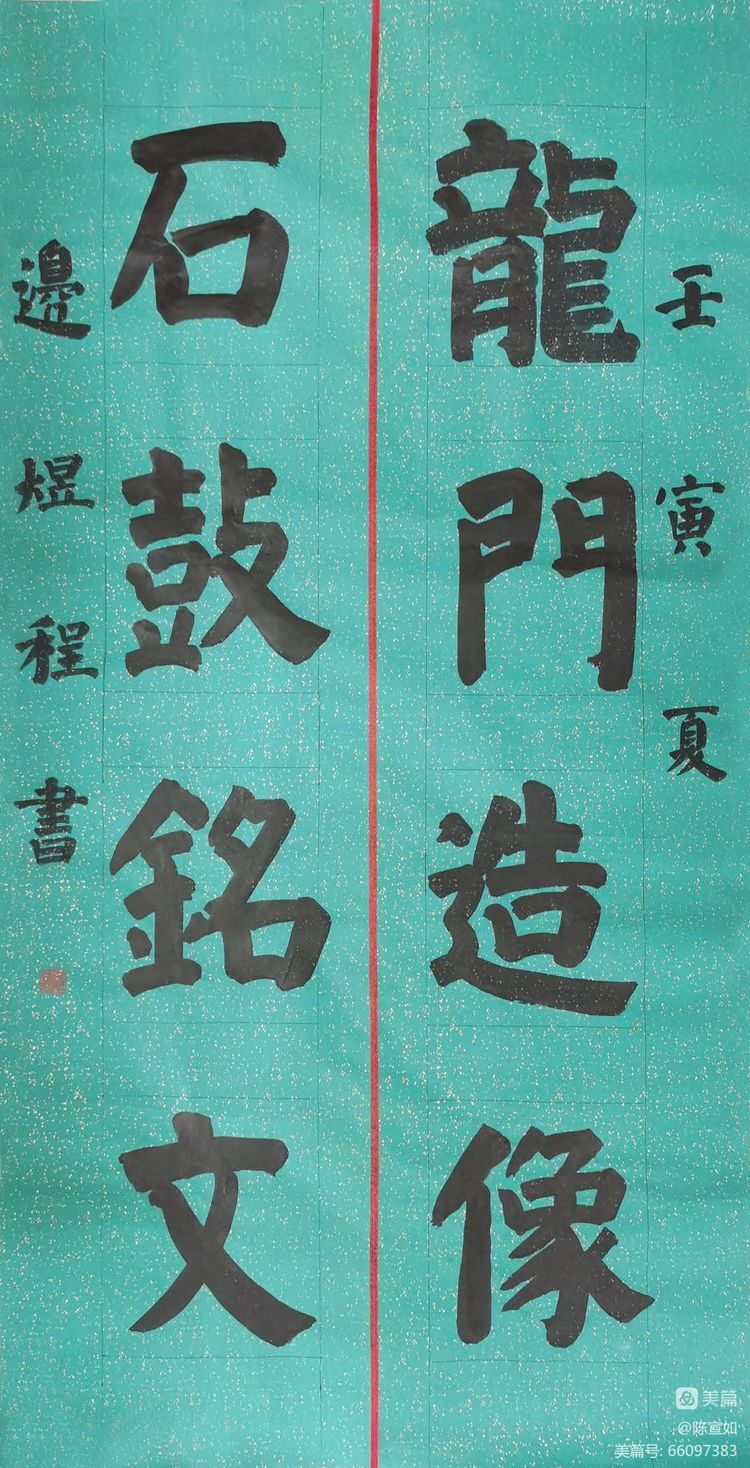 壬寅夏
龍門造像
石鼓銘文
邊煜程書
美篇
@陈宣如
美篇号: 66097383